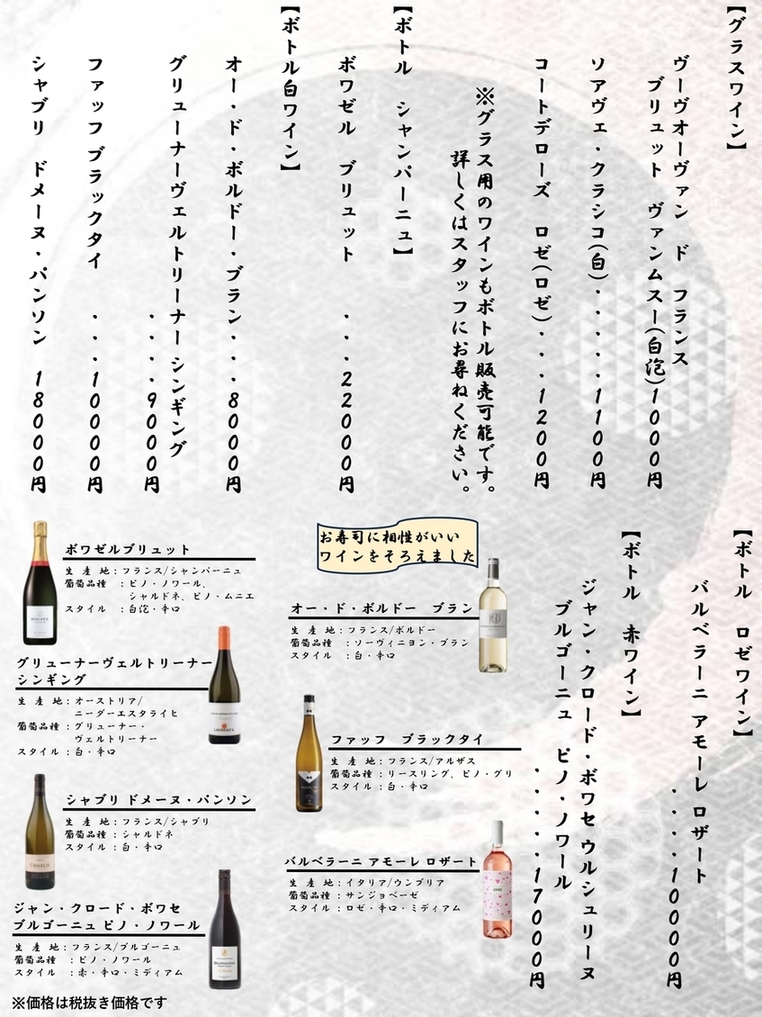 【グラスワイン】
ヴーヴオーヴァン ド フランス
ブリュット ヴァンムスー(白泡)1000円
ソアヴェ・クラシコ(白)・・・・1100円
コートデローズ ロゼ(ロゼ)・・・1200円
※グラス用のワインもボトル販売可能です。
詳しくはスタッフにお尋ねください。
【ボトル シャンパーニュ】
ボワゼル ブリュット ・・・22000円
【ボトル白ワイン】
オー・ド・ボルドー・ブラン・・・・8000円
グリューナーヴェルトリーナー シンギング
・・・・9000円
ファッフ ブラックタイ ・・・10000円
シャブリ ドメーヌ・バンソン 18000円
【ボトル ロゼワイン】
バルベラーニ アモーレ ロザート
・・・・・10000円
【ボトル 赤ワイン】
ジャン・クロード・ボワセ ウルシュリーヌ
ブルゴーニュ ピノ・ノワール
・・・・・・17000円
お寿司に相性がいい
ワインをそろえました
ボワゼルブリュット
生産地:フランス/シャンパーニュ
葡萄品種:ピノ・ノワール、
シャルドネ、ピノ・ムニエ
スタイル:白泡・辛口
オー・ド・ボルドー ブラン
生産地:フランス/ボルドー
葡萄品種:ソーヴィニヨン・ブラン
スタイル:白・辛口
グリューナーヴェルトリーナー
シンギング
生産地:オーストリア/
ニーダーエスタライヒ
葡萄品種:グリューナー・
ヴェルトリーナー
スタイル:白・辛口
ファッフ ブラックタイ
生産地:フランス/アルザス
葡萄品種:リースリング、ピノ・グリ
スタイル:白・辛口
シャブリ ドメーヌ・バンソン
生産地:フランス/シャブリ
葡萄品種:シャルドネ
スタイル:白・辛口
CHABLIS
バルベラーニ アモーレ ロザート
生産地:イタリア/ウンブリア
葡萄品種:サンジョベーゼ
スタイル:ロゼ・辛口・ミディアム
ジャン・クロード・ボワセ
ブルゴーニュ ピノ・ノワール
生産地:フランス/ブルゴーニュ
葡萄品種:ピノ・ノワール
スタイル:赤・辛口・ミディアム
※価格は税抜き価格です